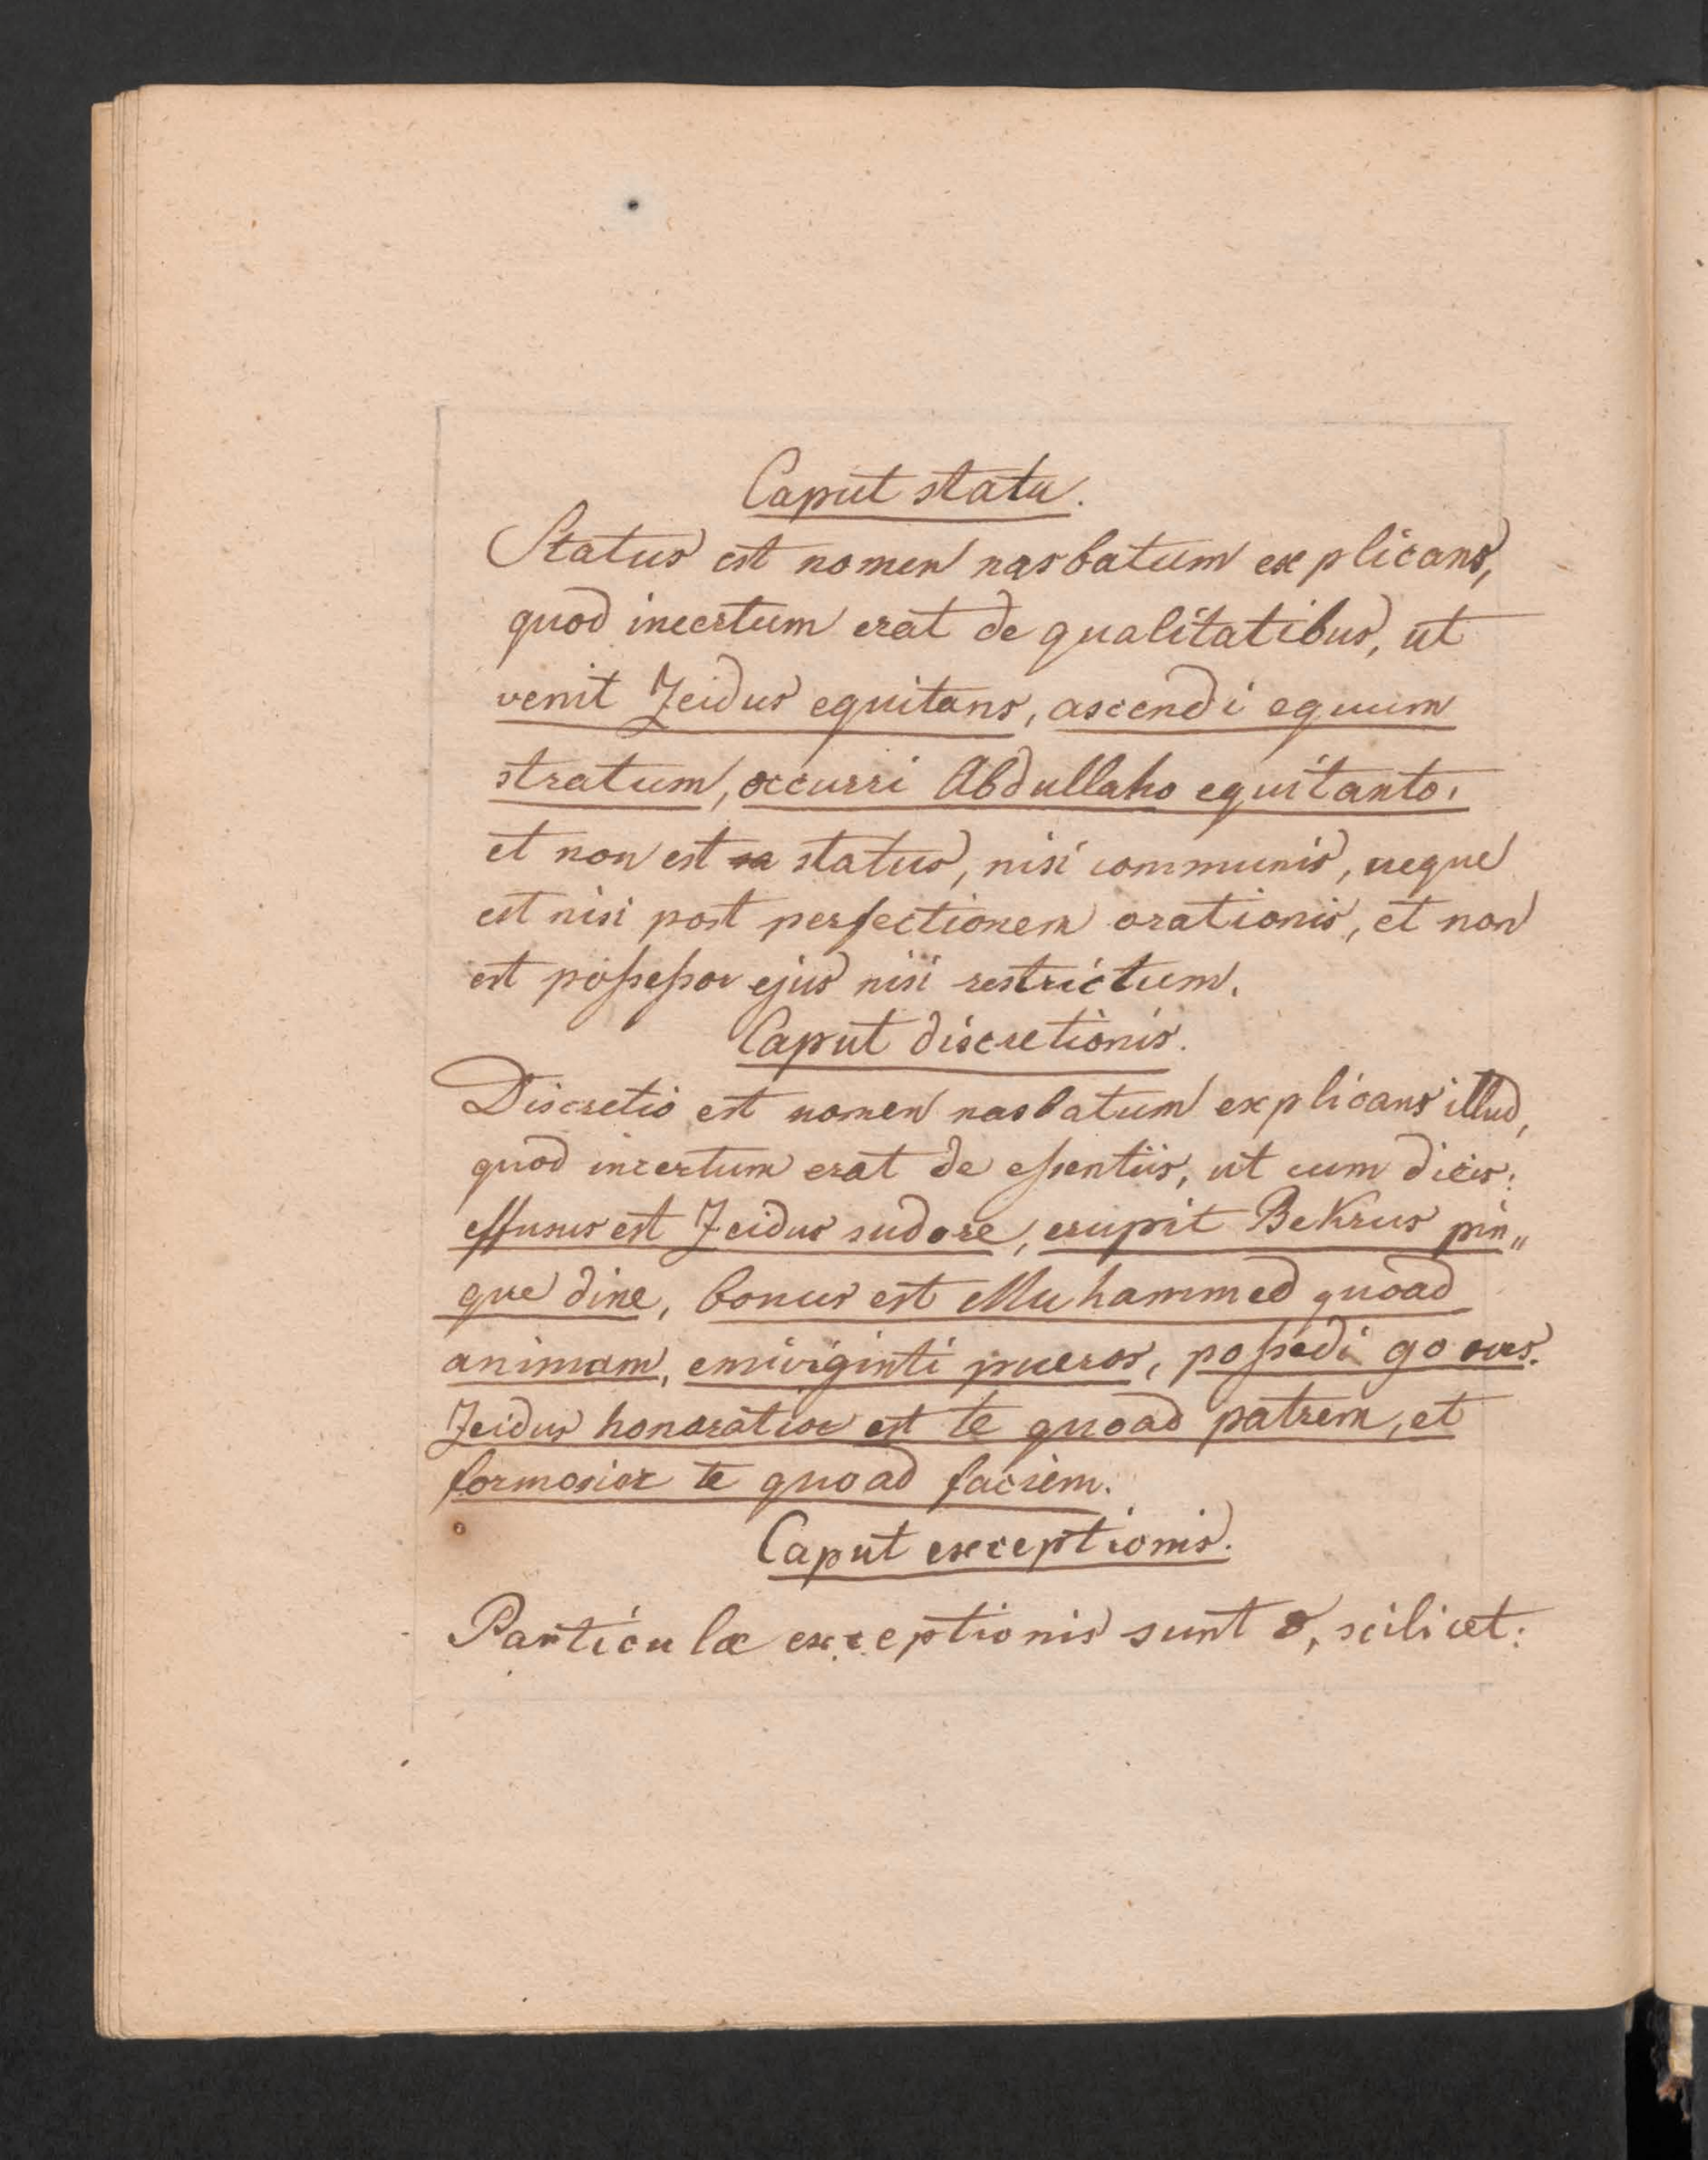 Caput statu.
Status est nomen nasbatum explicans,
quod incertum erat de qualitatibus, ut
venit Zeidus equitans, ascendi equum
stratum, occurri Abdullaho equitanto.
et non est status, nisi communis, neque
est nisi post perfectionem orationis, et non
est possessor ejus nisi restrictum.
Caput discretionis.
Discretio est nomen nasbatum explicans illud,
quod incertum erat de essentiis, ut cum dicis:
effusus est Zeidus sudore, erupit Bekrus pin„
que dine, bonus est Muhammed quoad
animam, emi viginti pueros, possedi 90 oves.
Zeidus honoratior est te quoad patrem, et
formosior te quoad faciem.
Caput exceptionis.
Particulæ exceptionis sunt 8, scilicet: